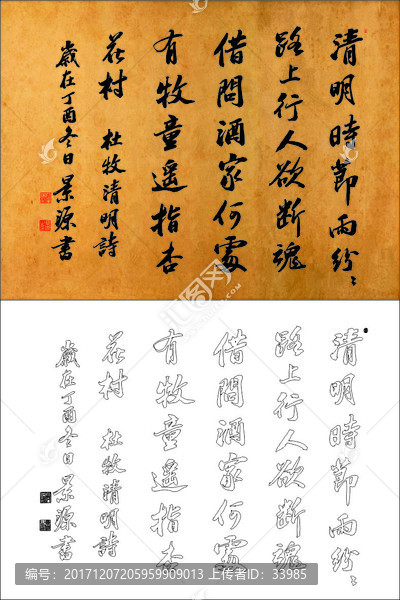 清明時節雨紛〻
路上行人欲斷魂
借問酒家何處
有牧童遥指杏
花村 杜牧清明詩
歲在丁酉冬日景源書
清明時節雨紛〻
路上行人欲斷魂
借問酒家何處
有牧童遥指杏
花村 杜牧清明詩
歲在丁酉冬日景源書
编号：20171207205959909013 上传者ID：33985